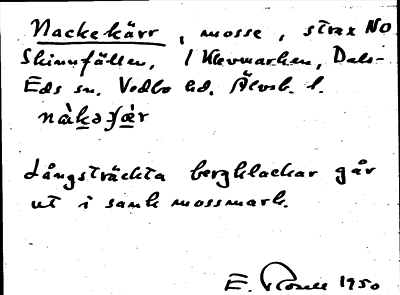 Nackekärr, mosse, strax NO
Skinnfällen, i Klevmarken, Dals-
Eds sn. Vedbo hd. Älvsb. l.
nàkəɟæ̀r
Långsträckta bergklackar går
ut i sank mossmark.
E. 1950